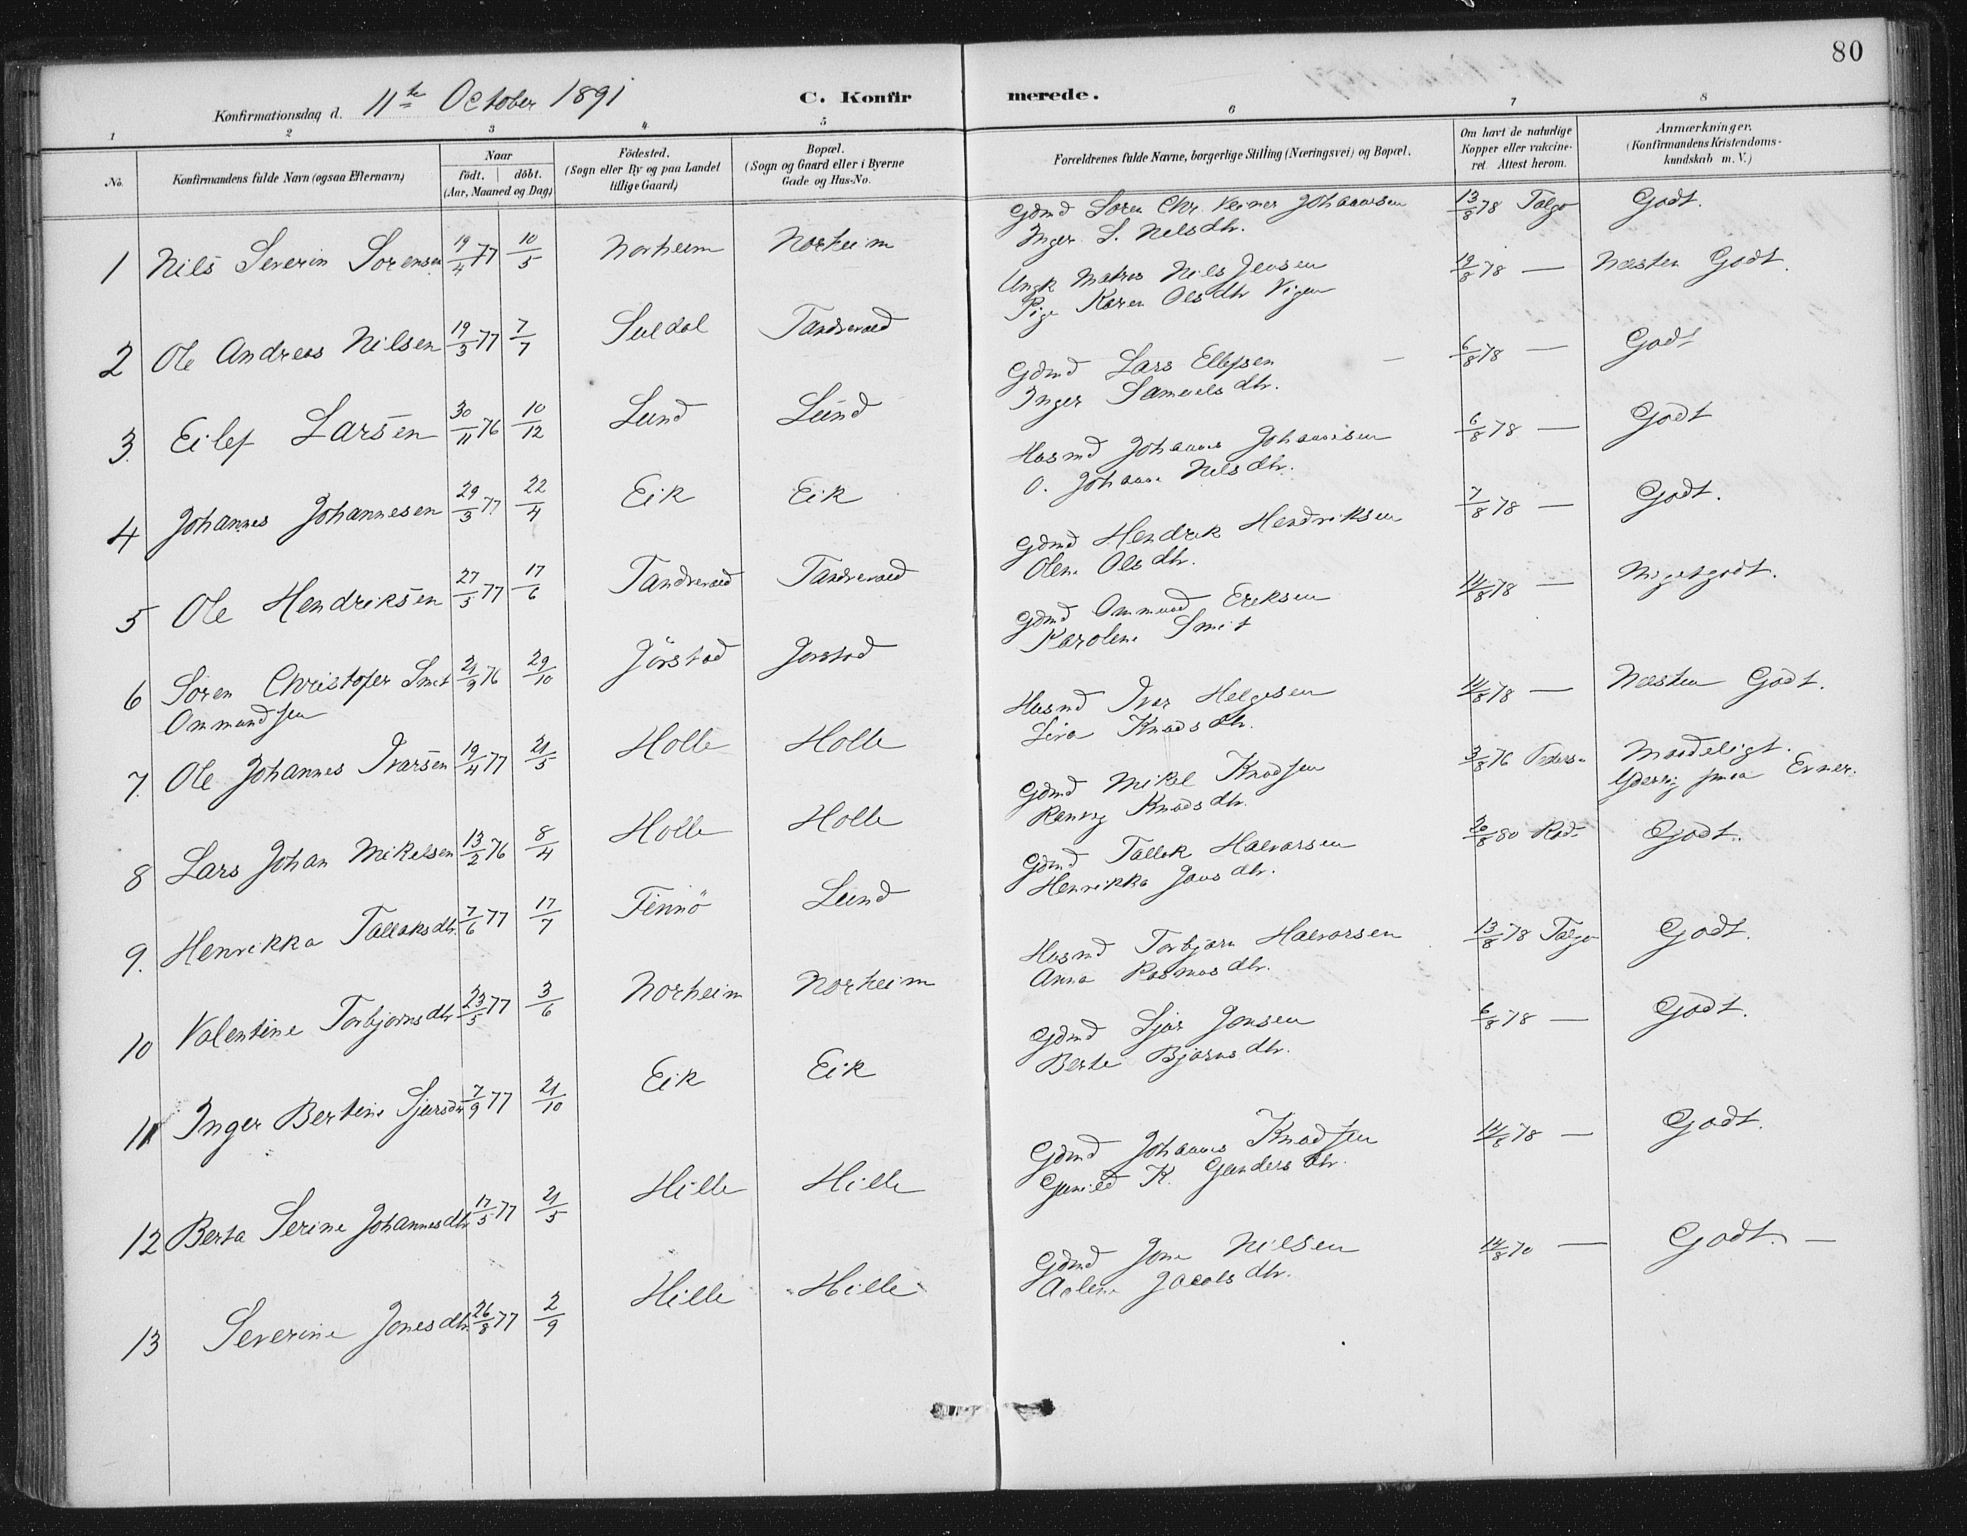 80
Konfirmationsdag d. 11te October 1891
C. Konfirmerede.
1 2 3 4 5 6 7 8
No.
Konfirmandens fulde Navn (ogsaa Efternavn)
Naar
födt. döbt.
(Aar, Maaned og Dag)
Födested.
(Sogn eller By og paa Landet
tillige Gaard)
Bopæl.
(Sogn og Gaard eller i Byerne
Gade og Hus-No.
Forældrenes fulde Navne, borgerlige Stilling (Næringsvei) og Bopæl.
Om havt de naturlige
Kopper eller vakcine-
ret Attest herom.
Anmærkninger.
(Konfirmandens Kristendoms-
kundskab m. V.)
1 Nils Severin Sorensen 19/4 77 10/5 Norheim Norheim
Gdmd Soren Chr. Verner Johannsen 13/8 78 Talgo Godt.
Inger S. Nelsdtr.
2 Ole Andreas Nilsen 19/3 77 7/7 Suldal Tandrevold
Ungk Matros Nils Jensen 19/8 78 — Næsten Godt.
Pige Karen Olsdtr Vigen
3. Eilef Larsen 30/11 76 10/12 Lund Lund
Gdmd Lars Ellefsen — 6/8 78 — Godt
Inger Samuelsdtr.
4 Johannes Johannesen 29/3 77 22/4 Eik Eik
Husmd Johannes Johannesen 6/8 78 — Godt
O. Johanne Nelsdtr.
5 Ole Hendriksen 27/5 77 17/6 Tandrevold Tandrevold
Gdmd Hendrik Hendriksen 7/8 78 — Godt.
Olene Olsdtr.
6 Sören Christofer Smit 21/9 76 29/10 Jörstad Jorstad
Ommundsen
Gdmd Ommund Eriksen 14/8 78 — Megetgodt.
Karoline Smit
7. Ole Johannes Ivarsen 19/4 77 21/5 Holle Holle
Husmd Ivar Helgesen 14/8 78 — Næsten Godt.
Siva Knudsdtr.
8 Lars Johan Mikelsen 13/2 76 8/4 Holle Holle
Gdmd Mikel Knudsen 3/8 76 Maadeligt.
Ranveg Knudsdtr. Yderlig smaa Evner.
9. Henrikka Tallaksdtr. 7/6 77 17/7 Finnö Lund
Gdmd Tallak Halvarsen 26/8 80 Godt.
Henrikka Jansdtr.
10 Valentine Torbjornsdtr 23/5 77 3/6 Norheim Norheim
Husmd Torbjorn Halvorsen 13/8 78 Talgo Godt.
Anna Rasmusdtr.
11 Inger Bertine Sjursdtr 7/9 77 21/10 Eik Eik
Gdmd Sjur Jonsen 6/8 78 — Godt.
Berte Bjornsdtr.
12 Berta Serine Johannesdtr 17/5 77 21/5 Hille Hille
Gdmd Johannes Knudsen 14/8 78 — Godt.
Gunild K. Gundersdtr.
13 Severine Jonesdtr. 26/8 77 2/9 Hille Hille
Gdmd Jone Nilsen 14/8 70 — Godt. —
Aolene Jacobsdtr.